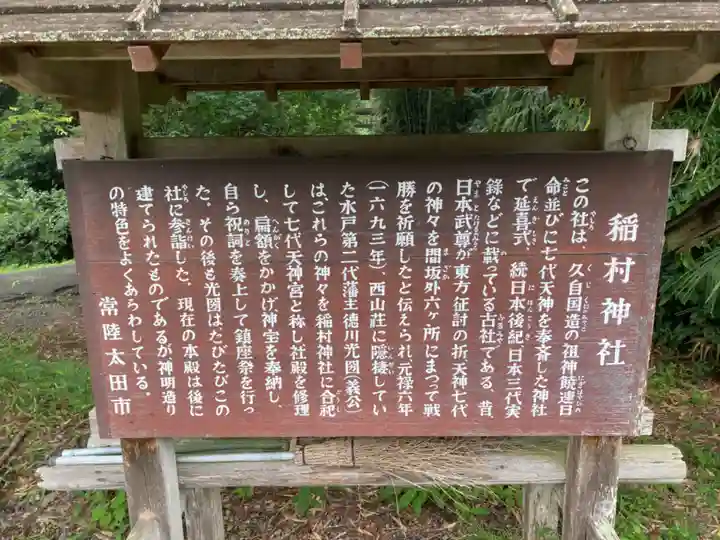 稲村神社
この社は、久自国造の祖神饒速日
命並びに七代天神を奉斎した神社
で延喜式、続日本後紀、日本三代実
録などに載っている古社である。昔、
日本武尊が東方征討の折天神七代
の神々を間坂外六ヶ所にまつって戦
勝を祈願したと伝えられ元禄六年
(一六九三年)、西山荘に隠棲してい
た水戸第二代藩主徳川光圀(義公)
は、これらの神々を稲村神社に合祀
して七代天神宮と称し社殿を修理
し、扁額をかかげ神宝を奉納し、
自ら祝詞を奏上して鎮座祭を行っ
た。その後も光圀はたびたびこの
社に参詣した。現在の本殿は後に
建てられたものであるが神明造り
の特色をよくあらわしている。
常陸太田市